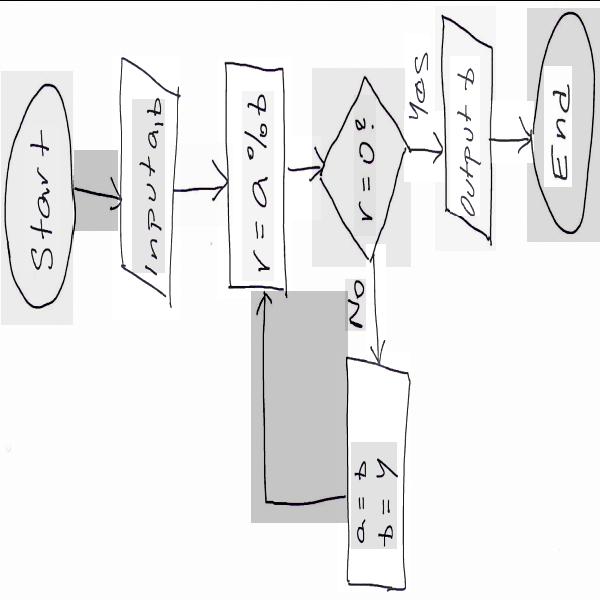 Start
Input a,b
r = a % b
r = 0?
Yes
Output b
End
No
a = b
b = r